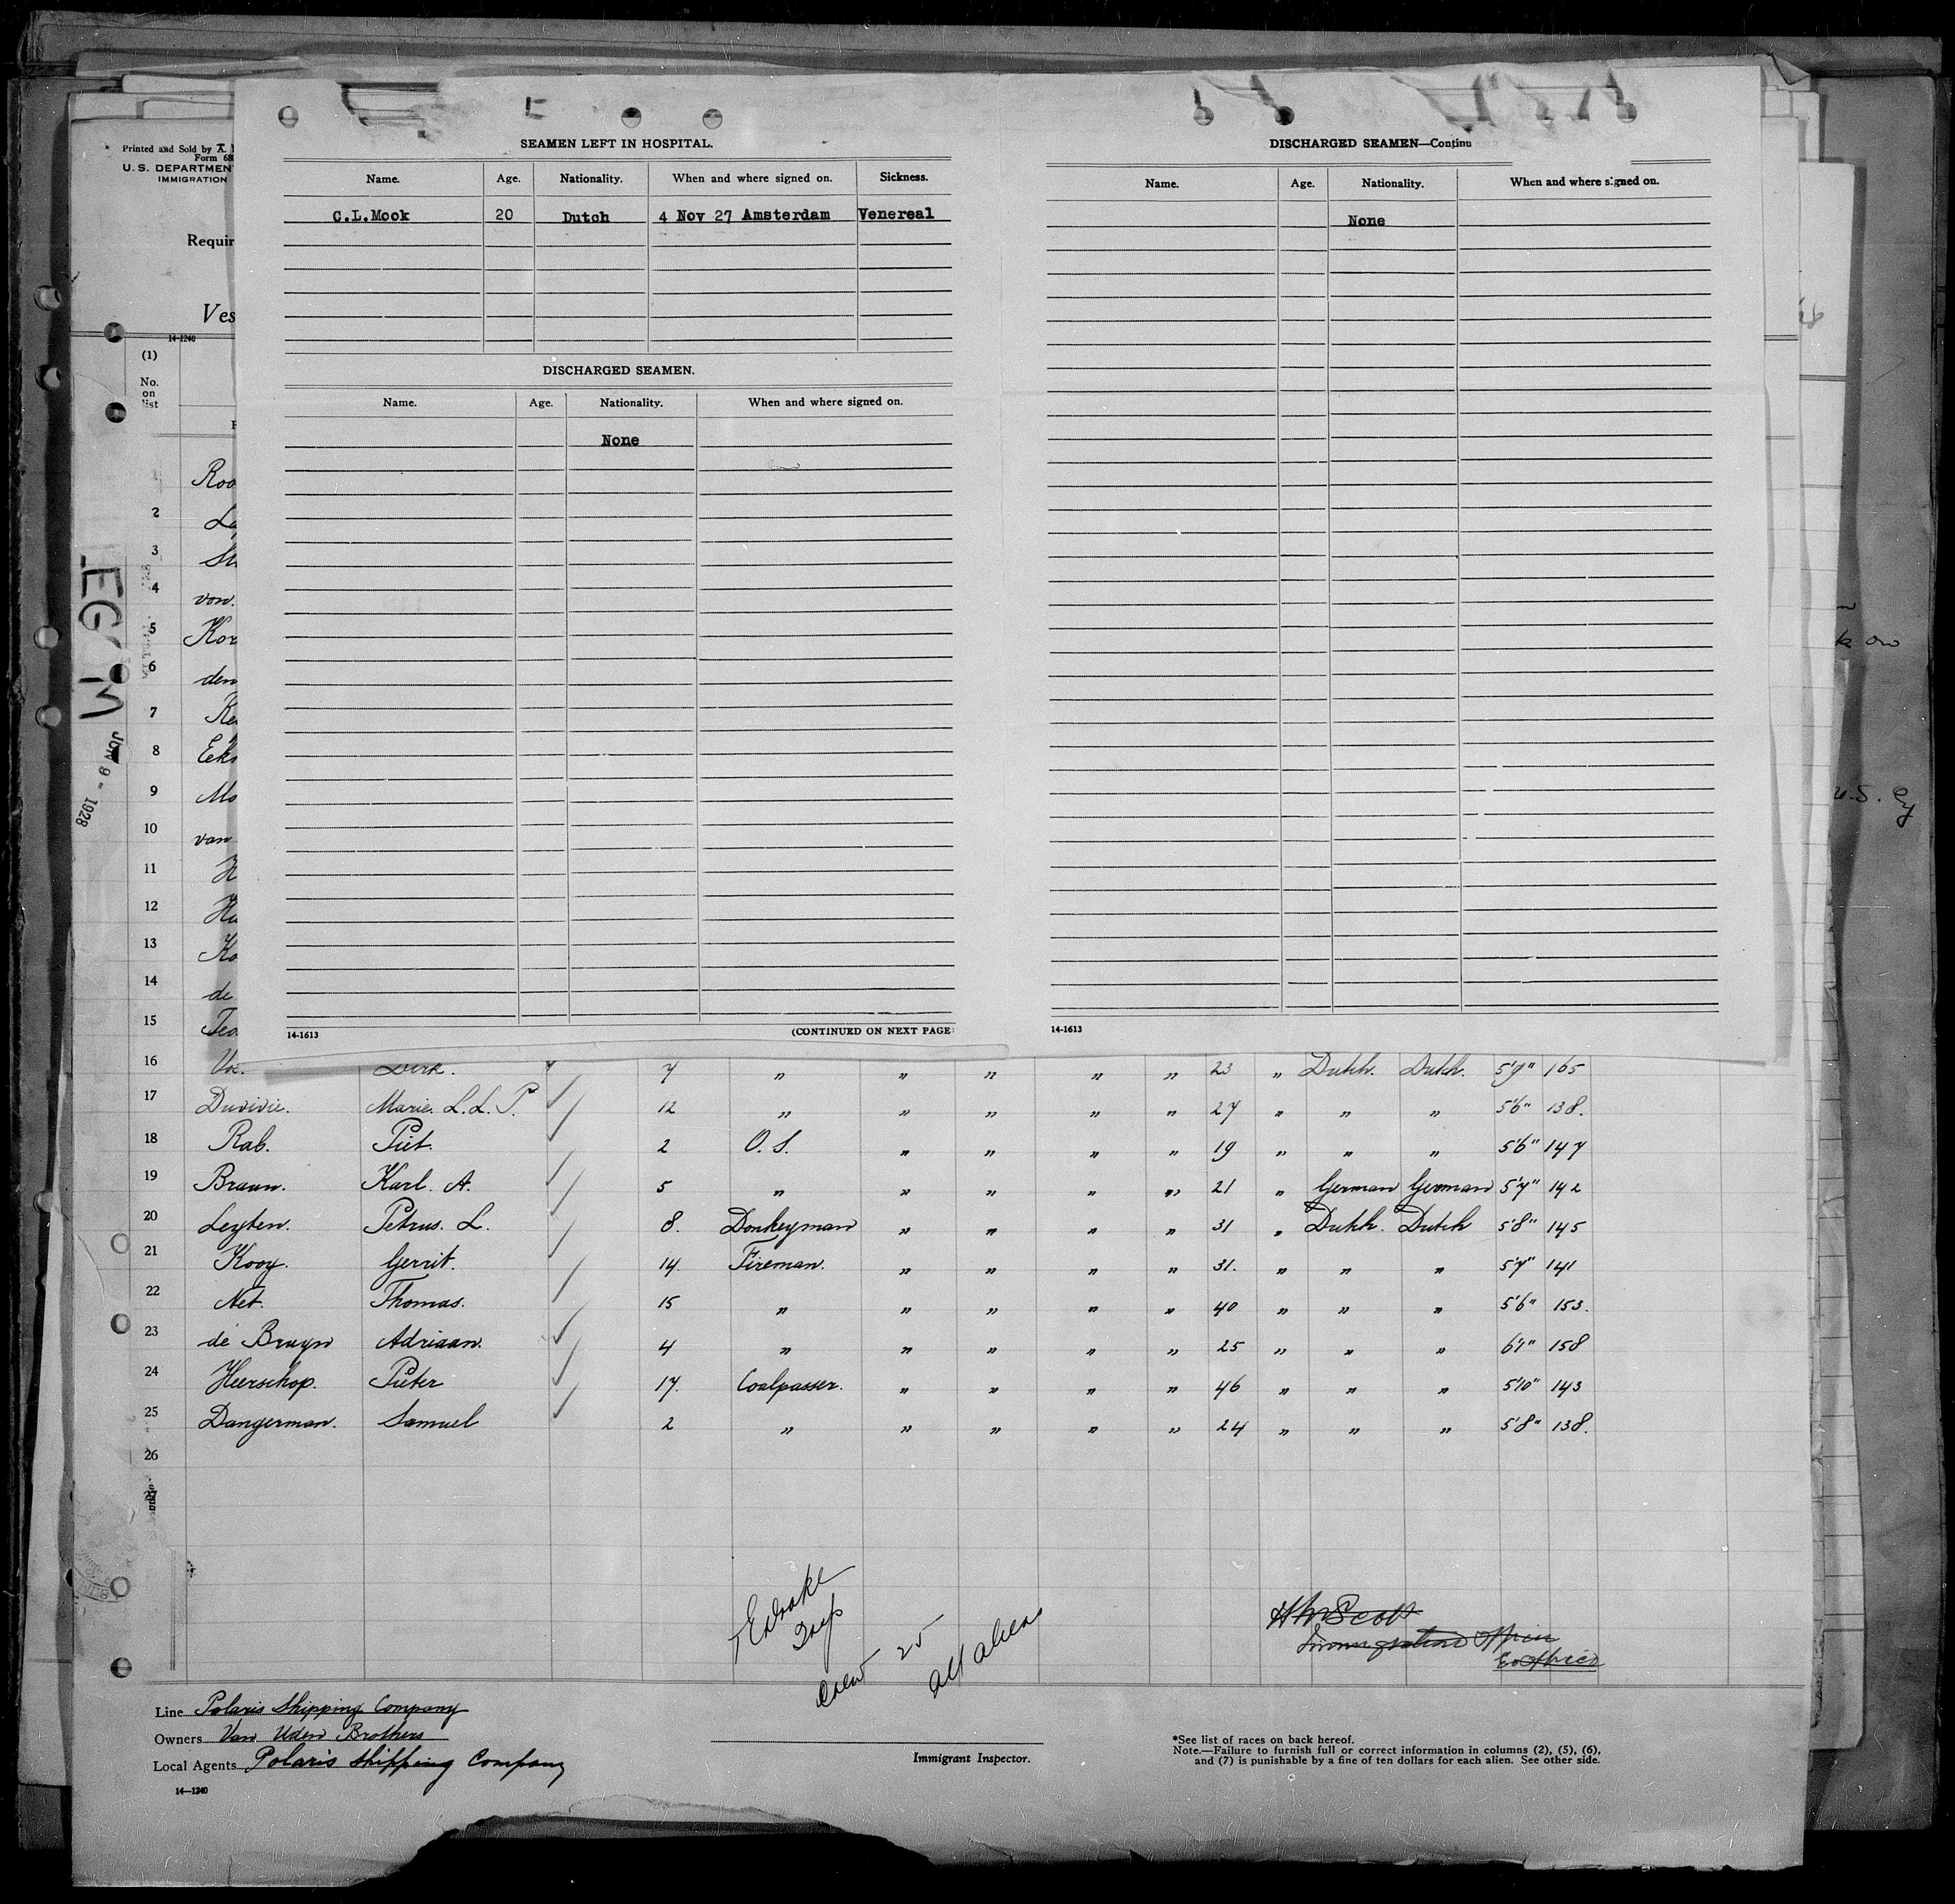 SEAMEN LEFT IN HOSPITAL.
Name. Age. Nationality. When and where signed on. Sickness.
C.L.Mook 20 Dutch 4 Nov 27 Amsterdam Venereal
DISCHARGED SEAMEN.
Name. Age. Nationality. When and where signed on.
None
14-1613 (CONTINUED ON NEXT PAGE
DISCHARGED SEAMEN—Continu
Name. Age. Nationality. When and where signed on.
None
14-1613
Printed and Sold by
Form 68
U. S. DEPARTMEN
IMMIGRATION
Requir
Ves
14-1240
(1)
No.
on
list
Roo
2 La
3
4 von.
5 Kor
6 den
7 Ke
8 Eek
9 Mo
10 van
11 H
12 Hu
13 Ko
14 de
15
16 Dirk. 7 " " " " " 23 " Dutch. Dutch. 5'9" 165
17 Duvivie. Marie. L. L. P. 12 " " " " " 27 " " " 5'6" 138.
18 Rab. Piet. 2 O. S. " " " " 19 " " " 5'6" 147
19 Braun. Karl. A. 5 " " " " " 21 " German German 5'7" 142
20 Leyten. Petrus. L. 8. Donkeyman " " " " 31 " Dutch. Dutch 5'8" 145
21 Kooy. Gerrit. 14. Fireman. " " " " 31. " " " 5'7" 141
22 Net. Thomas. 15 " " " " " 40 " " " 5'6" 153.
23 de Bruyn Adriaan. 4 " " " " " 25 " " " 6'1" 158
24 Heerschop. Pieter 17. Coalpasser. " " " " 46 " " " 5'10" 143
25 Dangerman. Samuel 2 " " " " " 24 " " " 5'8" 138.
26
27
JUN 9 - 1928
crew 25
all aliens
Scott
Immigration Officer
Line Polaris Shipping Company
Owners Van Uden Brothers
Local Agents Polaris Shipping Company
14—1240
Immigrant Inspector.
*See list of races on back hereof.
Note.—Failure to furnish full or correct information in columns (2), (5), (6),
and (7) is punishable by a fine of ten dollars for each alien. See other side.
U.S.